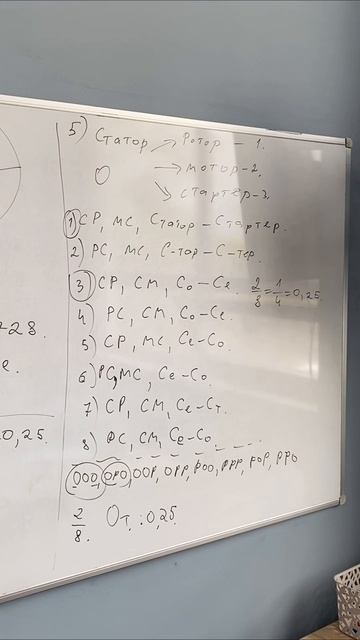 5) Статор → Ротор - 1.
О → мотор - 2.
→ стартёр - 3.
1) СР, МС, Статор - Стартёр.
2) РС, МС, С-тор - С-тер.
3) СР, СМ, Со - Се. 2/8 = 1/4 = 0,25
4) РС, СМ, Со - Се.
5) СР, МС, Се - Со.
6) РС, МС, Се - Со.
7) СР, СМ, Се - Ст.
8) РС, СМ, Се - Со.
ООО, ОРО, ООР, ОРР, РОО, РРР, РОР, РРО
2/8. От.: 0,25.
28.
е.
0,25.